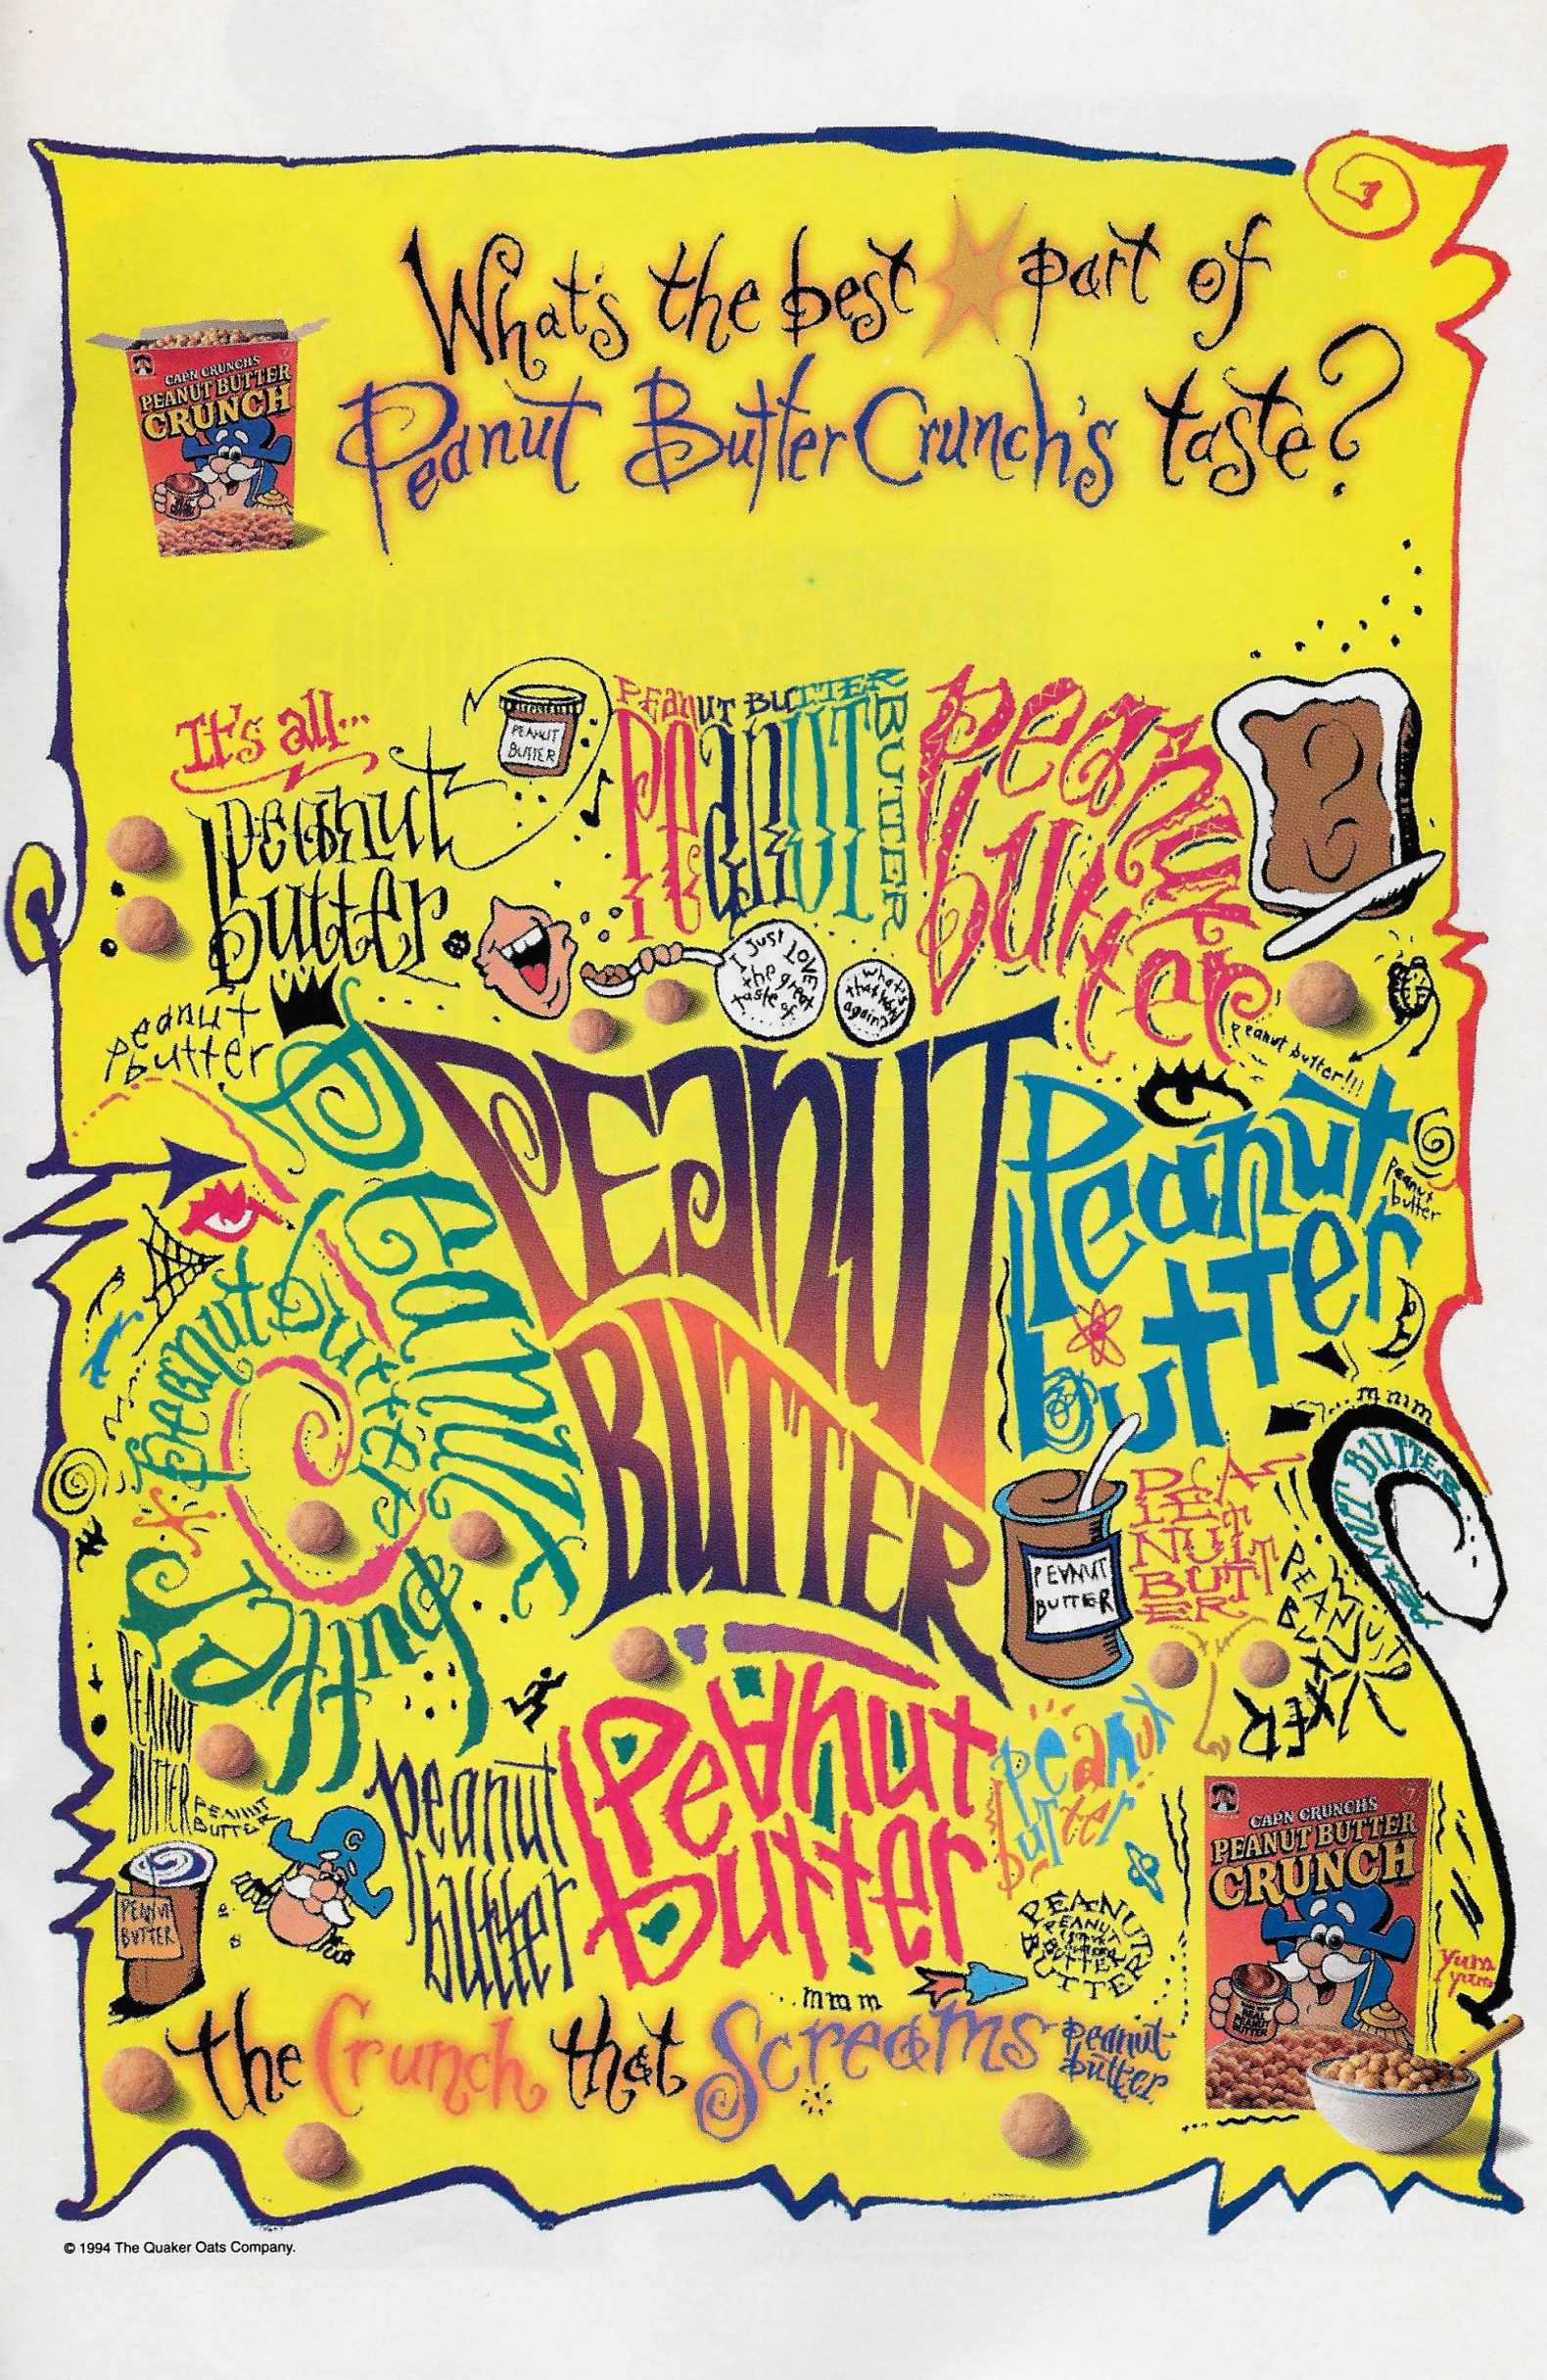 What's the best part of
Peanut Butter Crunch's taste?
CAP'N CRUNCH'S
PEANUT BUTTER
CRUNCH
It's all...
peanut
butter
PEANUT
BUTTER
PEANUT BUTTER
PEANUT
BUTTER
peanut
butter
I Just LOVE
the great
taste of...
what's
that word
again?
peanut butter!!!
peanut
butter
Peanut
butter
PEANUT
BUTTER
Peanut
butter
Peanut
butter
peanut butter
...m mmm
PEANUT BUTTER...
PEANUT
BUTTER
PEA
NUT
BUTT
ER
PEANUT
BUTTER
PEANUT
BUTTER
PEANUT
BUTTER
PEANUT
BUTTER
C
peanut
butter
Peanut
butter
peanut
butter
PEANUT
BUTTER
PEANUT
BUTTER
...mmm
CAP'N CRUNCH'S
PEANUT BUTTER
CRUNCH
REAL
PEANUT
BUTTER
Yum
yum
the Crunch that Screams peanut
butter
© 1994 The Quaker Oats Company.